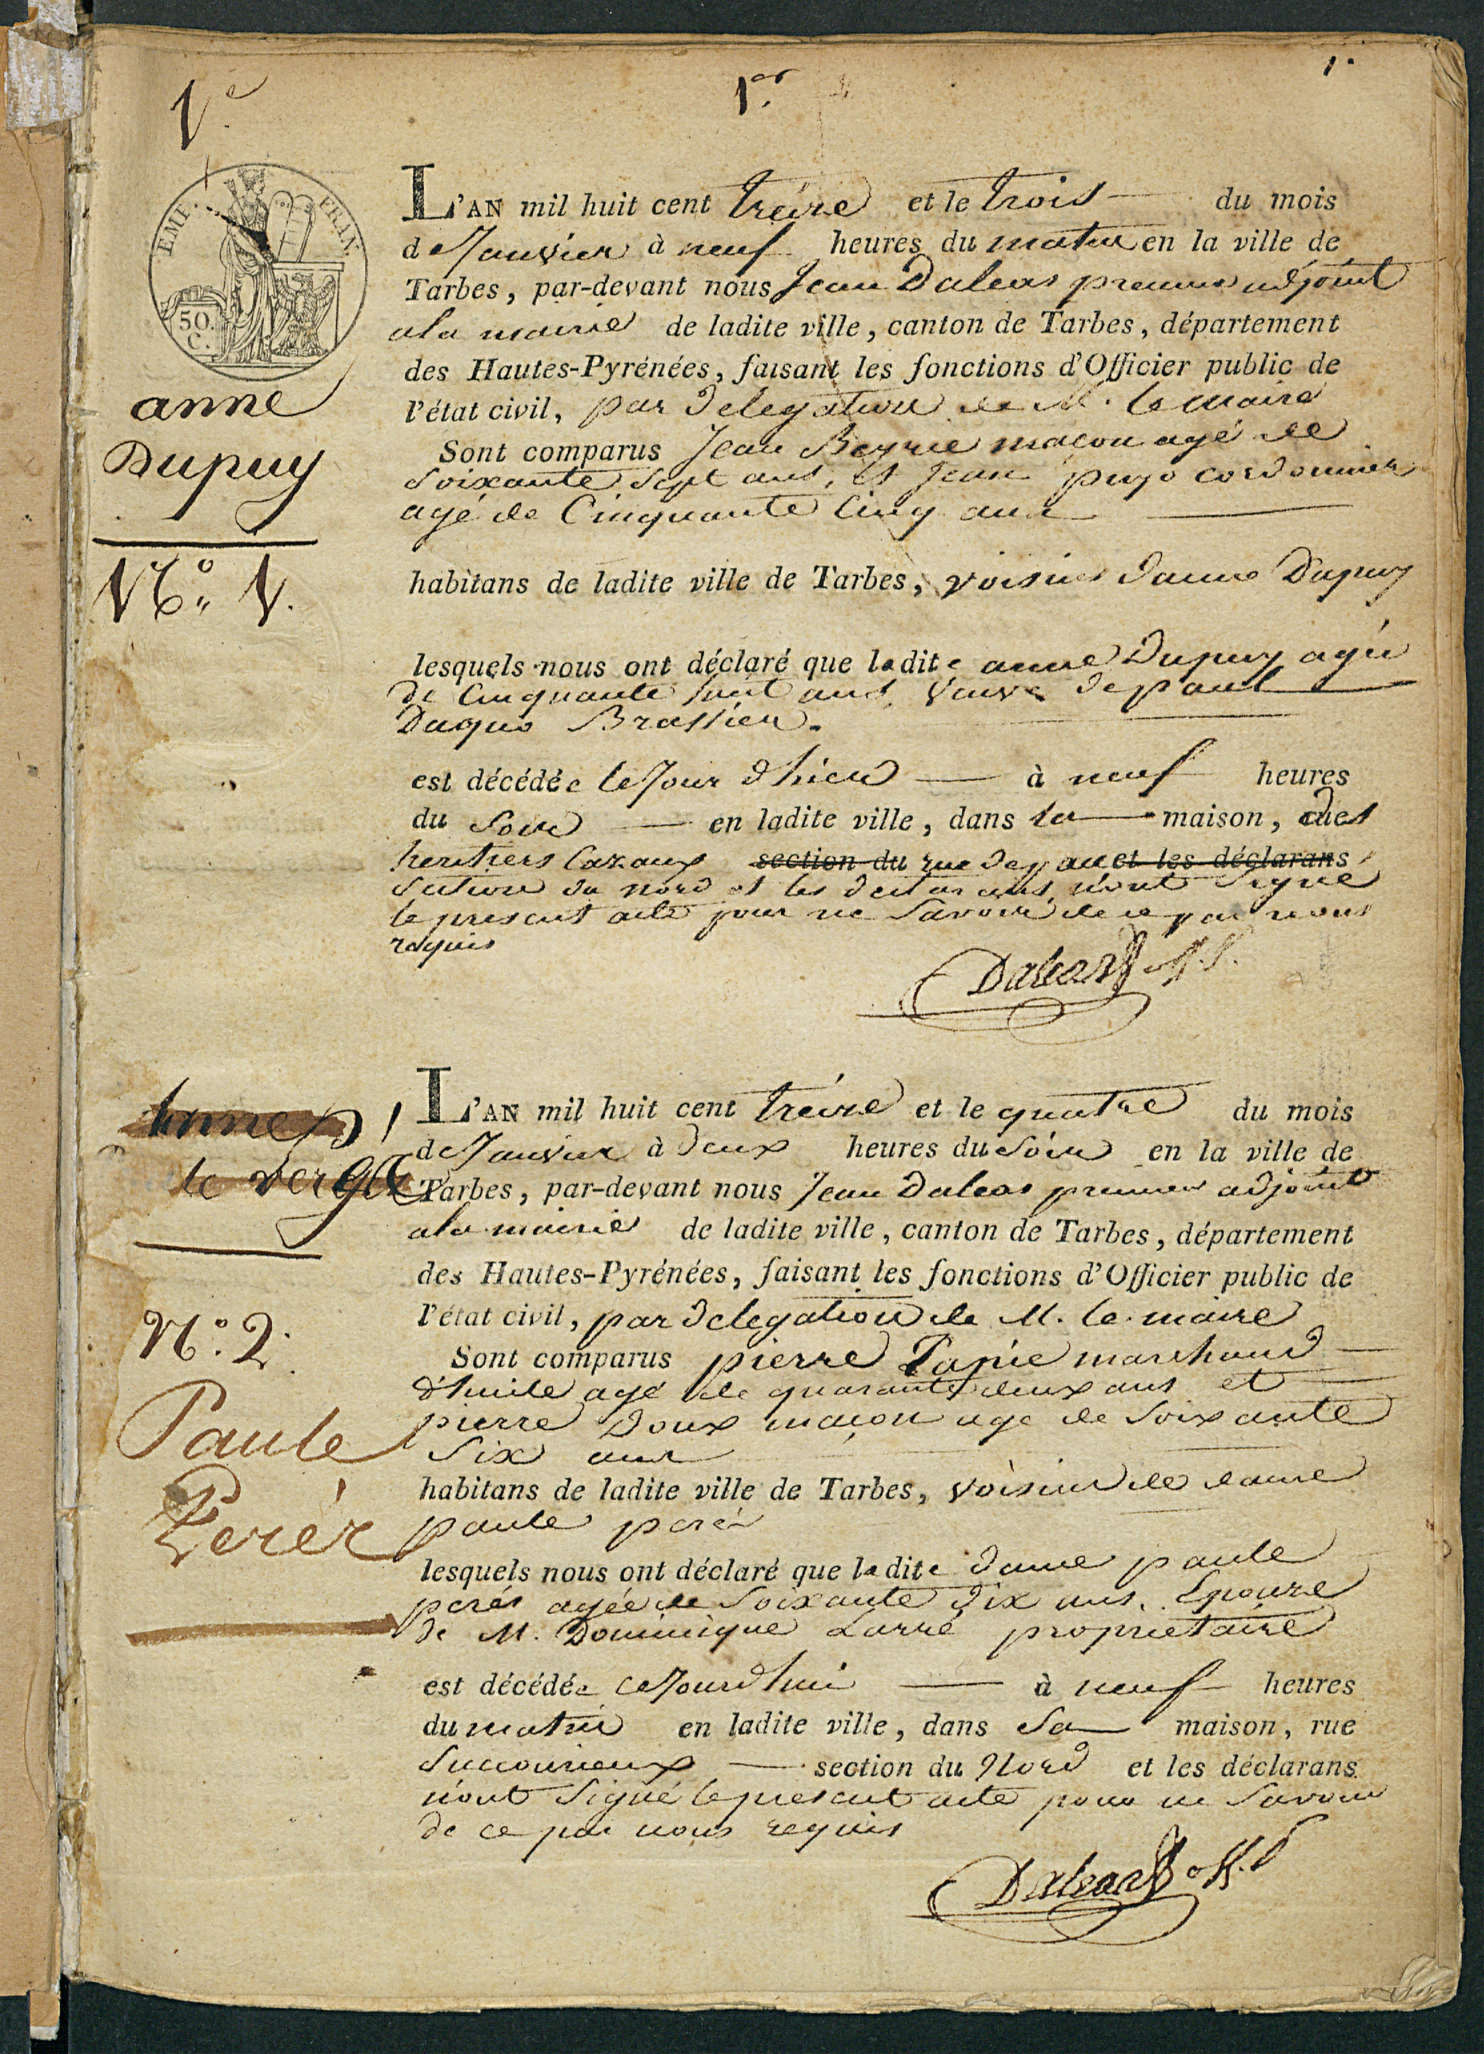 1.er
1.
1.e
EMP. FRAN.
50.
C.
anne
Dupuy
N.o 1.
L'AN mil huit cent treize et le trois du mois
de Janvier à neuf heures du matin en la ville de
Tarbes, par-devant nous Jean Daleas premier adjoint
a la mairie de ladite ville, canton de Tarbes, département
des Hautes-Pyrénées, faisant les fonctions d'Officier public de
l'état civil, par delegation de M. le maire
Sont comparus Jean Beyrie maçon agé de
soixante sept ans, et Jean pujo cordonnier
agé de Cinquante Cinq ans
habitans de ladite ville de Tarbes, voisins danne Dupuy
lesquels nous ont déclaré que ladite anne Dupuy agée
de Cinquante huit ans, veuve de paul
Duquo Brassier.
est décédée le Jour dhier à neuf heures
du Soir en ladite ville, dans la maison, des
heritiers Cazaux section du rue de et les déclarans
section du nord et les declarans, n'ont Signé
le present acte pour ne Savoir de ce par nous
requis
Daleas off. P.
Anne
le verge
N.o 2.
Paule
Perér
L'AN mil huit cent tréize et le quatre du mois
de Janvier à deux heures du Soir en la ville de
Tarbes, par-devant nous Jean Daleas premier adjoint
a la mairie de ladite ville, canton de Tarbes, département
des Hautes-Pyrénées, faisant les fonctions d'Officier public de
l'état civil, par delegation de M. le maire
Sont comparus pierre Tapie marchand
d'huile agé de quarante deux ans et
pierre Doux maçon age de Soixante
Six ans
habitans de ladite ville de Tarbes, voisins de dame
paule perés
lesquels nous ont déclaré que ladite dame paule
perés agée de Soixante dix ans, Epouze
de M. Dominique Larré propriétaire
est décédée cejourdhui à neuf heures
du matin en ladite ville, dans Sa maison, rue
section du Nord et les déclarans
n'ont Signé le present acte pour ne Savoir
de ce par nous requis
Daleas off. P